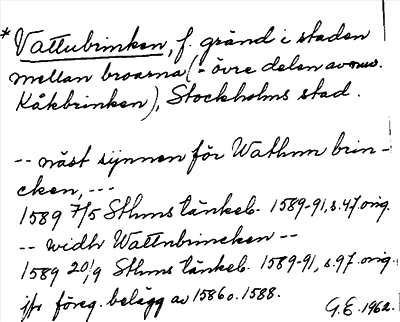 *Vattubrinken, f. gränd i staden
mellan broarna (= övre delen av nuv.
Kåkbrinken), Stockholms stad.
-- näst synnen för Wathnn brin-
cken, ---
1589 7/5 Sthms tänkeb. 1589-91, s. 47 orig.
-- widh Wattnbrincken --
1589 20/9 Sthms tänkeb. 1589-91, s. 97 orig.
jfr föreg. belägg av 1586 o. 1588.
G.E. 1962.